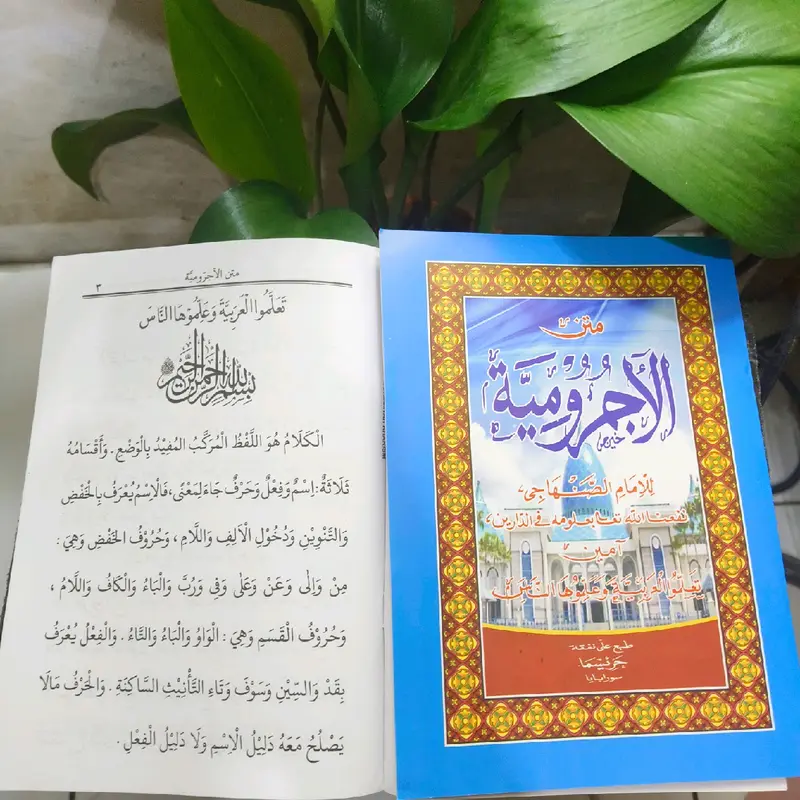 متن الأجرومية
٣
تَعَلَّمُوا الْعَرَبِيَّةَ وَعَلِّمُوْهَا النَّاسَ
بسم الله الرحمن الرحيم
الْكَلَامُ هُوَ اللَّفْظُ الْمُرَكَّبُ الْمُفِيْدُ بِالْوَضْعِ . وَأَقْسَامُهُ
ثَلَاثَةٌ : اِسْمٌ وَفِعْلٌ وَحَرْفٌ جَاءَ لِمَعْنًى ، فَالْاِسْمُ يُعْرَفُ بِالْخَفْضِ
وَالتَّنْوِيْنِ وَدُخُوْلِ الْاَلِفِ وَاللَّامِ ، وَحُرُوْفُ الْخَفْضِ وَهِيَ :
مِنْ وَاِلَى وَعَنْ وَعَلَى وَفِى وَرُبَّ وَالْبَاءُ وَالْكَافُ وَاللَّامُ ،
وَحُرُوْفُ الْقَسَمِ وَهِيَ : الْوَاوُ وَالْبَاءُ وَالتَّاءُ . وَالْفِعْلُ يُعْرَفُ
بِقَدْ وَالسِّيْنِ وَسَوْفَ وَتَاءِ التَّأْنِيْثِ السَّاكِنَةِ . وَالْحَرْفُ مَالَا
يَصْلُحُ مَعَهُ دَلِيْلُ الْاِسْمِ وَلَا دَلِيْلُ الْفِعْلِ .
متن
الأجرومية
للإمام الصنهاجى
نفعنا الله تعا بعلومه فى الدارين
آمين
تعلموا العربية وعلموها الناس
طبع على نفقة
سورابايا